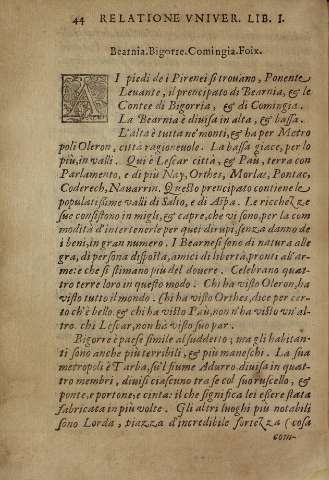 44 RELATIONE VNIVER. LIB. I.
Bearnia. Bigorre. Comingia. Foix.
AI piedi de i Pirenei si trouano, Ponente
Leuante, il prencipato di Bearnia, & le
Contee di Bigorria, & di Comingia.
La Bearnia è diuisa in alta, & bassa.
L'alta è tutta ne' monti, & ha per Metro
poli Oleron, città ragioneuole. La bassa giace, per lo
più, in valli. Qui è Lescar città, & Paù, terra con
Parlamento, e di più Nay, Orthes, Morlas, Pontac,
Coderech, Nauarrin, Questo prencipato contiene le
populatissime valli di Salio, e di Aspa. Le ricchezze
sue consistono in migli, & capre, che vi sono, per la com
modità d'intertenerle per quei dirupi, senza danno de
i beni, in gran numero. I Bearnesi sono di natura alle
gra, di persona disposta, amici di libertà, pronti all'ar-
me: e che si stimano più del douere. Celebrano quat
tro terre loro in questo modo. Chi ha visto Oleron, ha
visto tutto il mondo. Chi ha visto Orthes, dice per cer-
to ch'è bello. & chi ha visto Paù, non n'ha visto vn'al-
tro. chi Lescar, non hà visto suo par.
Bigorre è paese simile al sudetto; ma gli habitan-
ti sono anche più terribili, & più maneschi. La sua
metropoli è Tarba, sù'l fiume Adurro, diuisa in quat
tro membri, diuisi ciascuno tra se col suo ruscello, &
ponte, e portone, e cinta: il che significa lei essere stata
fabricata in più volte. Gli altri luoghi più notabili
sono Lorda, piazza d'incredibile fortezza (cosa
com-